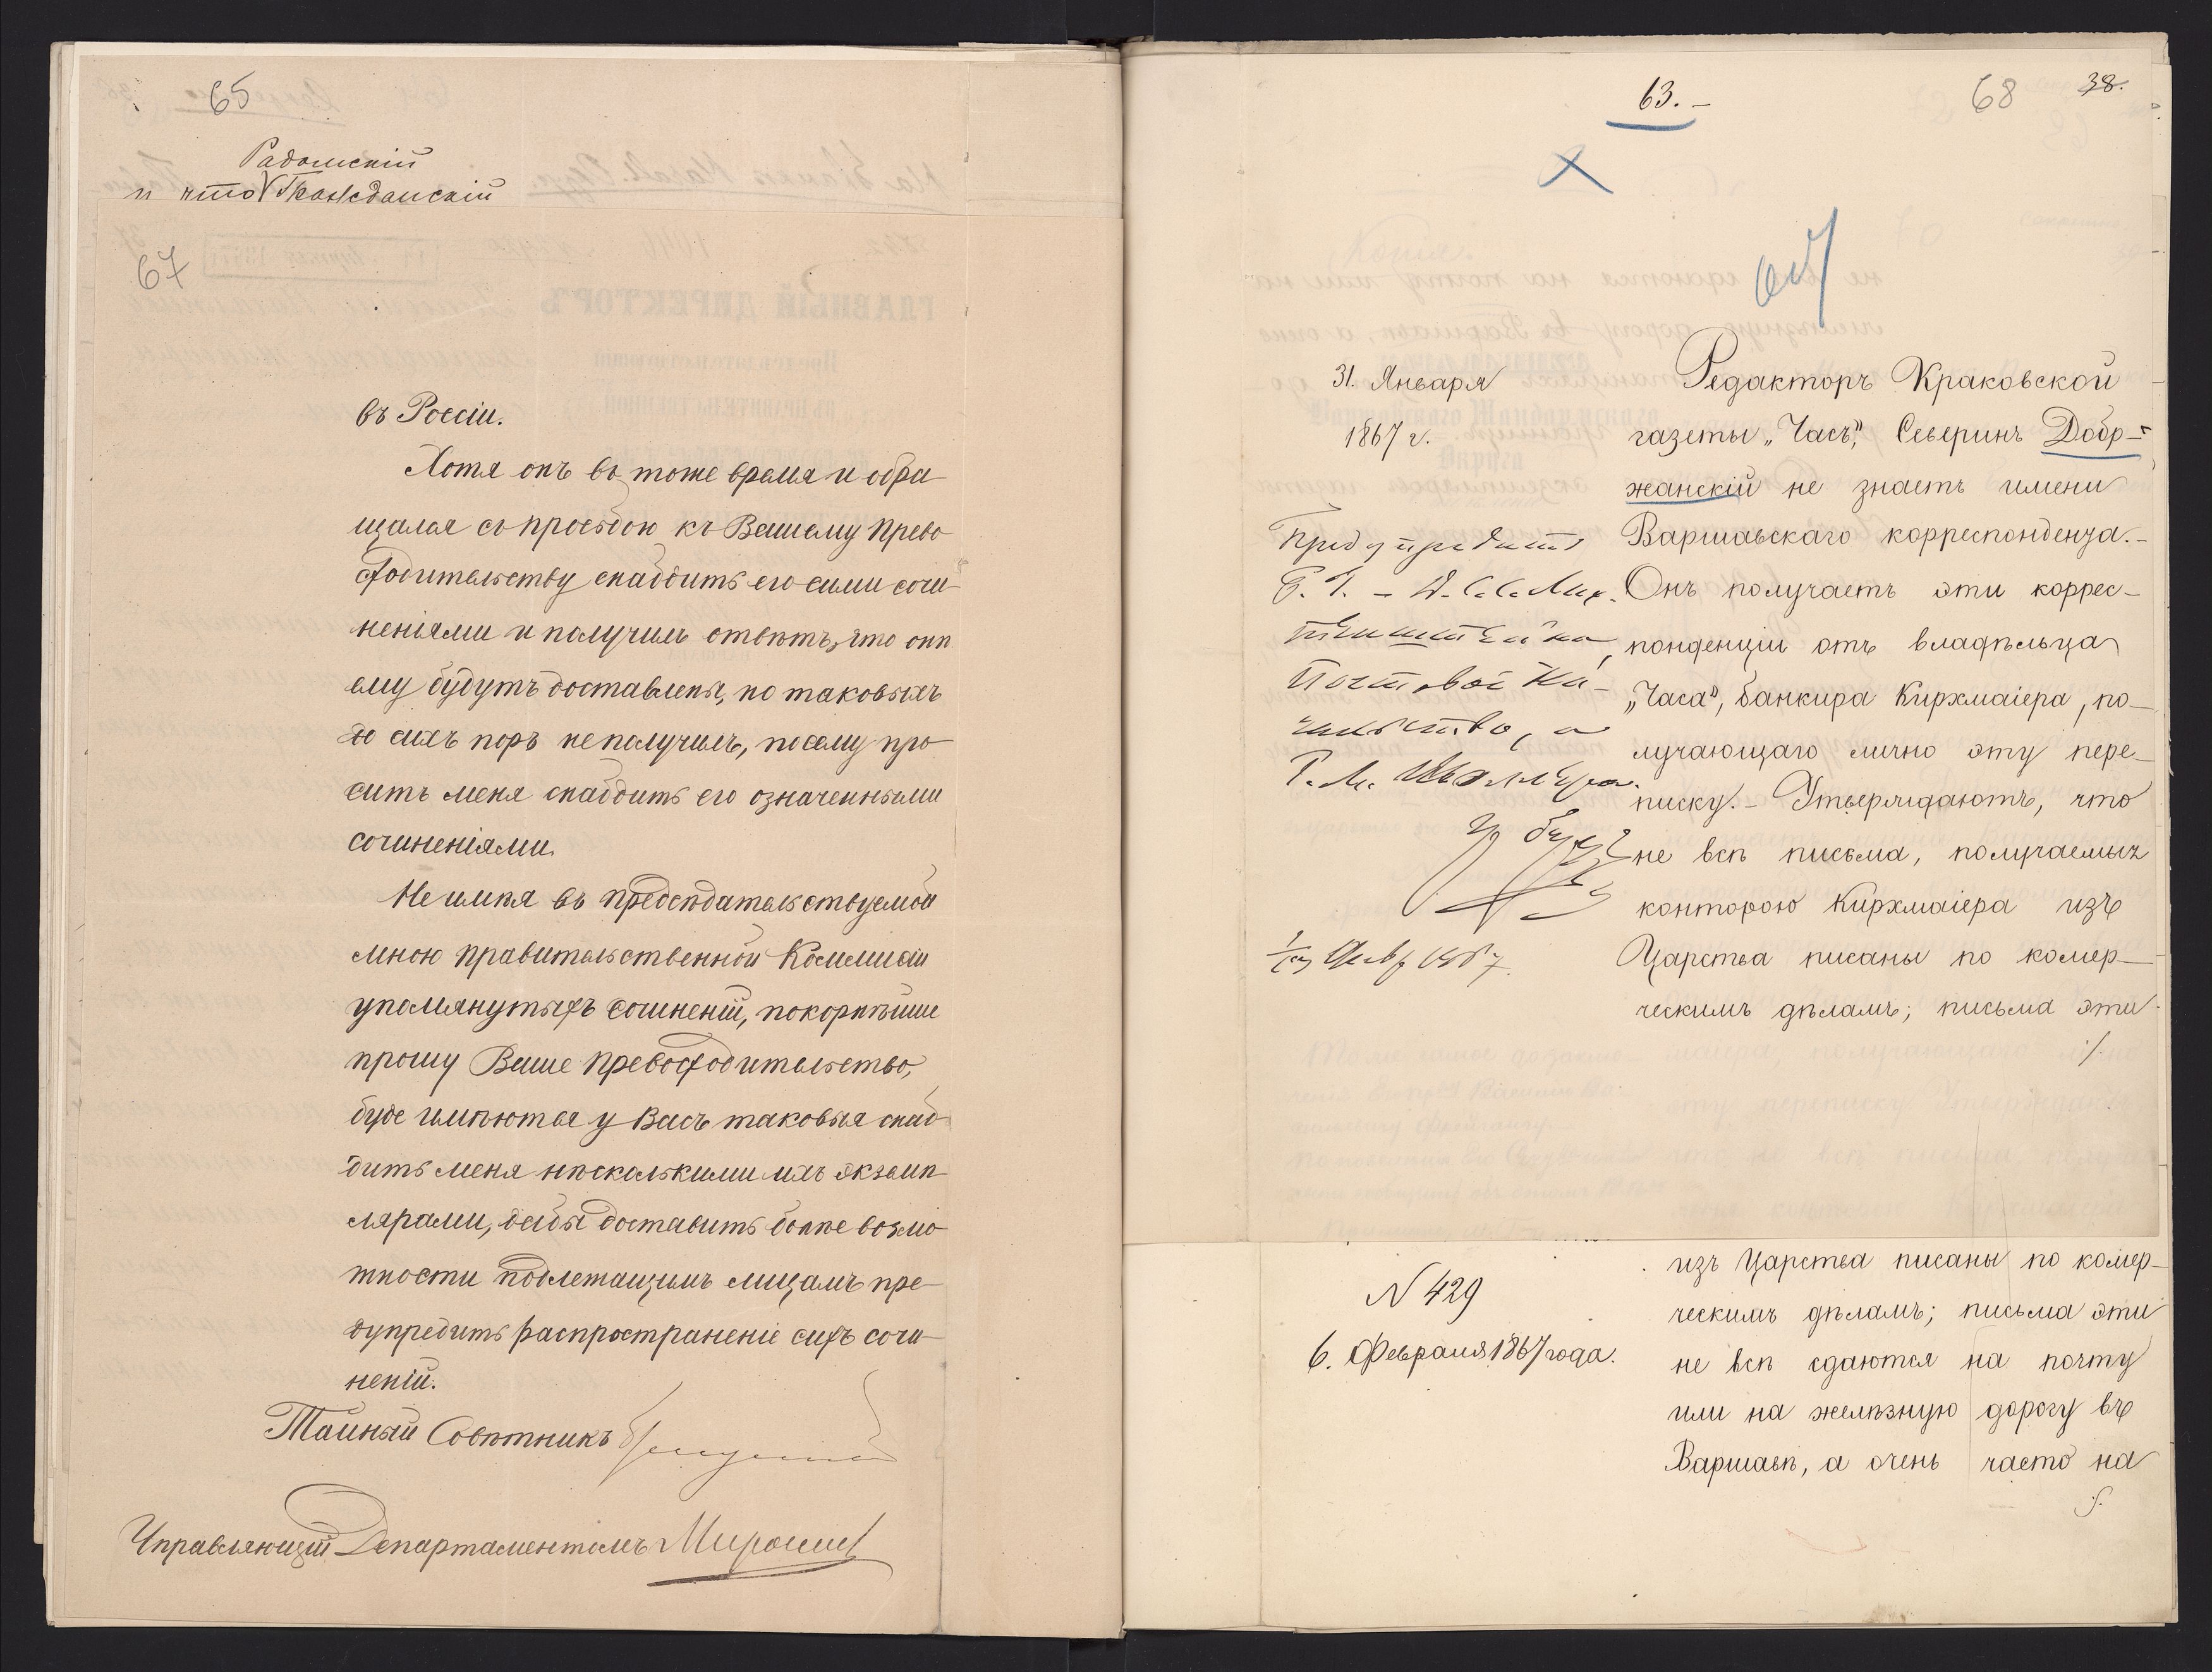 65
Радомскій
и что Гражданскій
67
въ Россіи.
Хотя онъ въ тоже время и обра-
щался съ просьбою къ Вашему Прево-
сходительству снабдить его сими сочи-
неніями и получилъ отвѣтъ, что они
ему будутъ доставлены, но таковыхъ
до сихъ поръ не получилъ, посему про-
ситъ меня снабдить его означенными
сочиненіями.
Не имѣя въ предсѣдательствуемой
мною Правительственной Коммисіи
упомянутыхъ сочиненій, покорнѣйше
прошу Ваше Превосходительство,
буде имѣются у Васъ таковыя снаб-
дить меня нѣсколькими ихъ экземп-
лярами, дабы доставить болѣе возмо-
жности подлежащимъ лицамъ пре-
дупредить распространеніе сихъ сочи-
неній.
Тайный Совѣтникъ
Управляющій Департаментомъ
63.-
68
38.
31. Января
1867 г.
Редакторъ Краковской
газеты „Часъ", Северинъ Добр-
жанскій не знаетъ имени
Варшавскаго корреспондента.-
Онъ получаетъ эти коррес-
понденціи отъ владѣльца
„Часа", банкира Кирхмаіера, по-
лучающаго лично эту пере-
писку.- Утверждаютъ, что
не всѣ письма, получаемыя
конторою Кирхмаіера изъ
Царства писаны по комер-
ческимъ дѣламъ; письма эти
./.
Предупредить
Почтовое На-
чальство, и
N 429
6. Февраля 1867 года.
изъ Царства писаны по комер-
ческимъ дѣламъ; письма эти
не всѣ сдаются на почту
или на желѣзную дорогу въ
Варшавѣ, а очень часто на